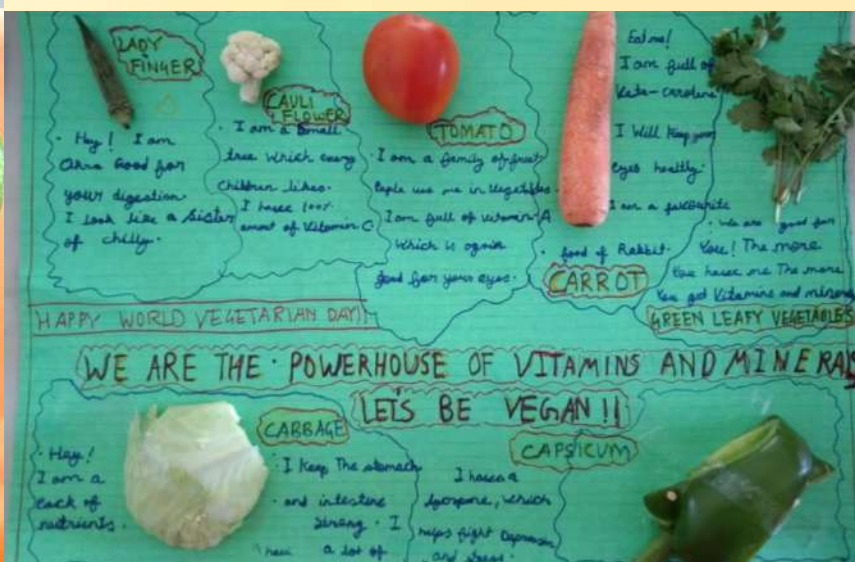 LADY
FINGER
• Hey! I am
Okra Good for
your digestion.
I look like a Sister
of chilly.
CAULI
FLOWER
• I am a small
tree which every
children likes.
I have 100%
amount of Vitamin C
TOMATO
• I am a family of fruit
People use me in Vegetables.
I am full of vitamin A
Which is again
good for your eyes.
• Eat me!
I am full of
Keta-carotene
I Will Keep your
eyes healthy.
I am a favourite
• food of Rabbit.
CARROT
• We are good for
You! The more
You have me The more
You get Vitamins and minerals
GREEN LEAFY VEGETABLES
HAPPY WORLD VEGETARIAN DAY!!
WE ARE THE • POWERHOUSE OF VITAMINS AND MINERALS
LET'S BE VEGAN!!
• Hey!
I am a
nutrients.
CABBAGE
• I Keep The stomach
• and intestine
strong. I
have a lot of
CAPSICUM
I have a
which
helps fight Depression
and stress.